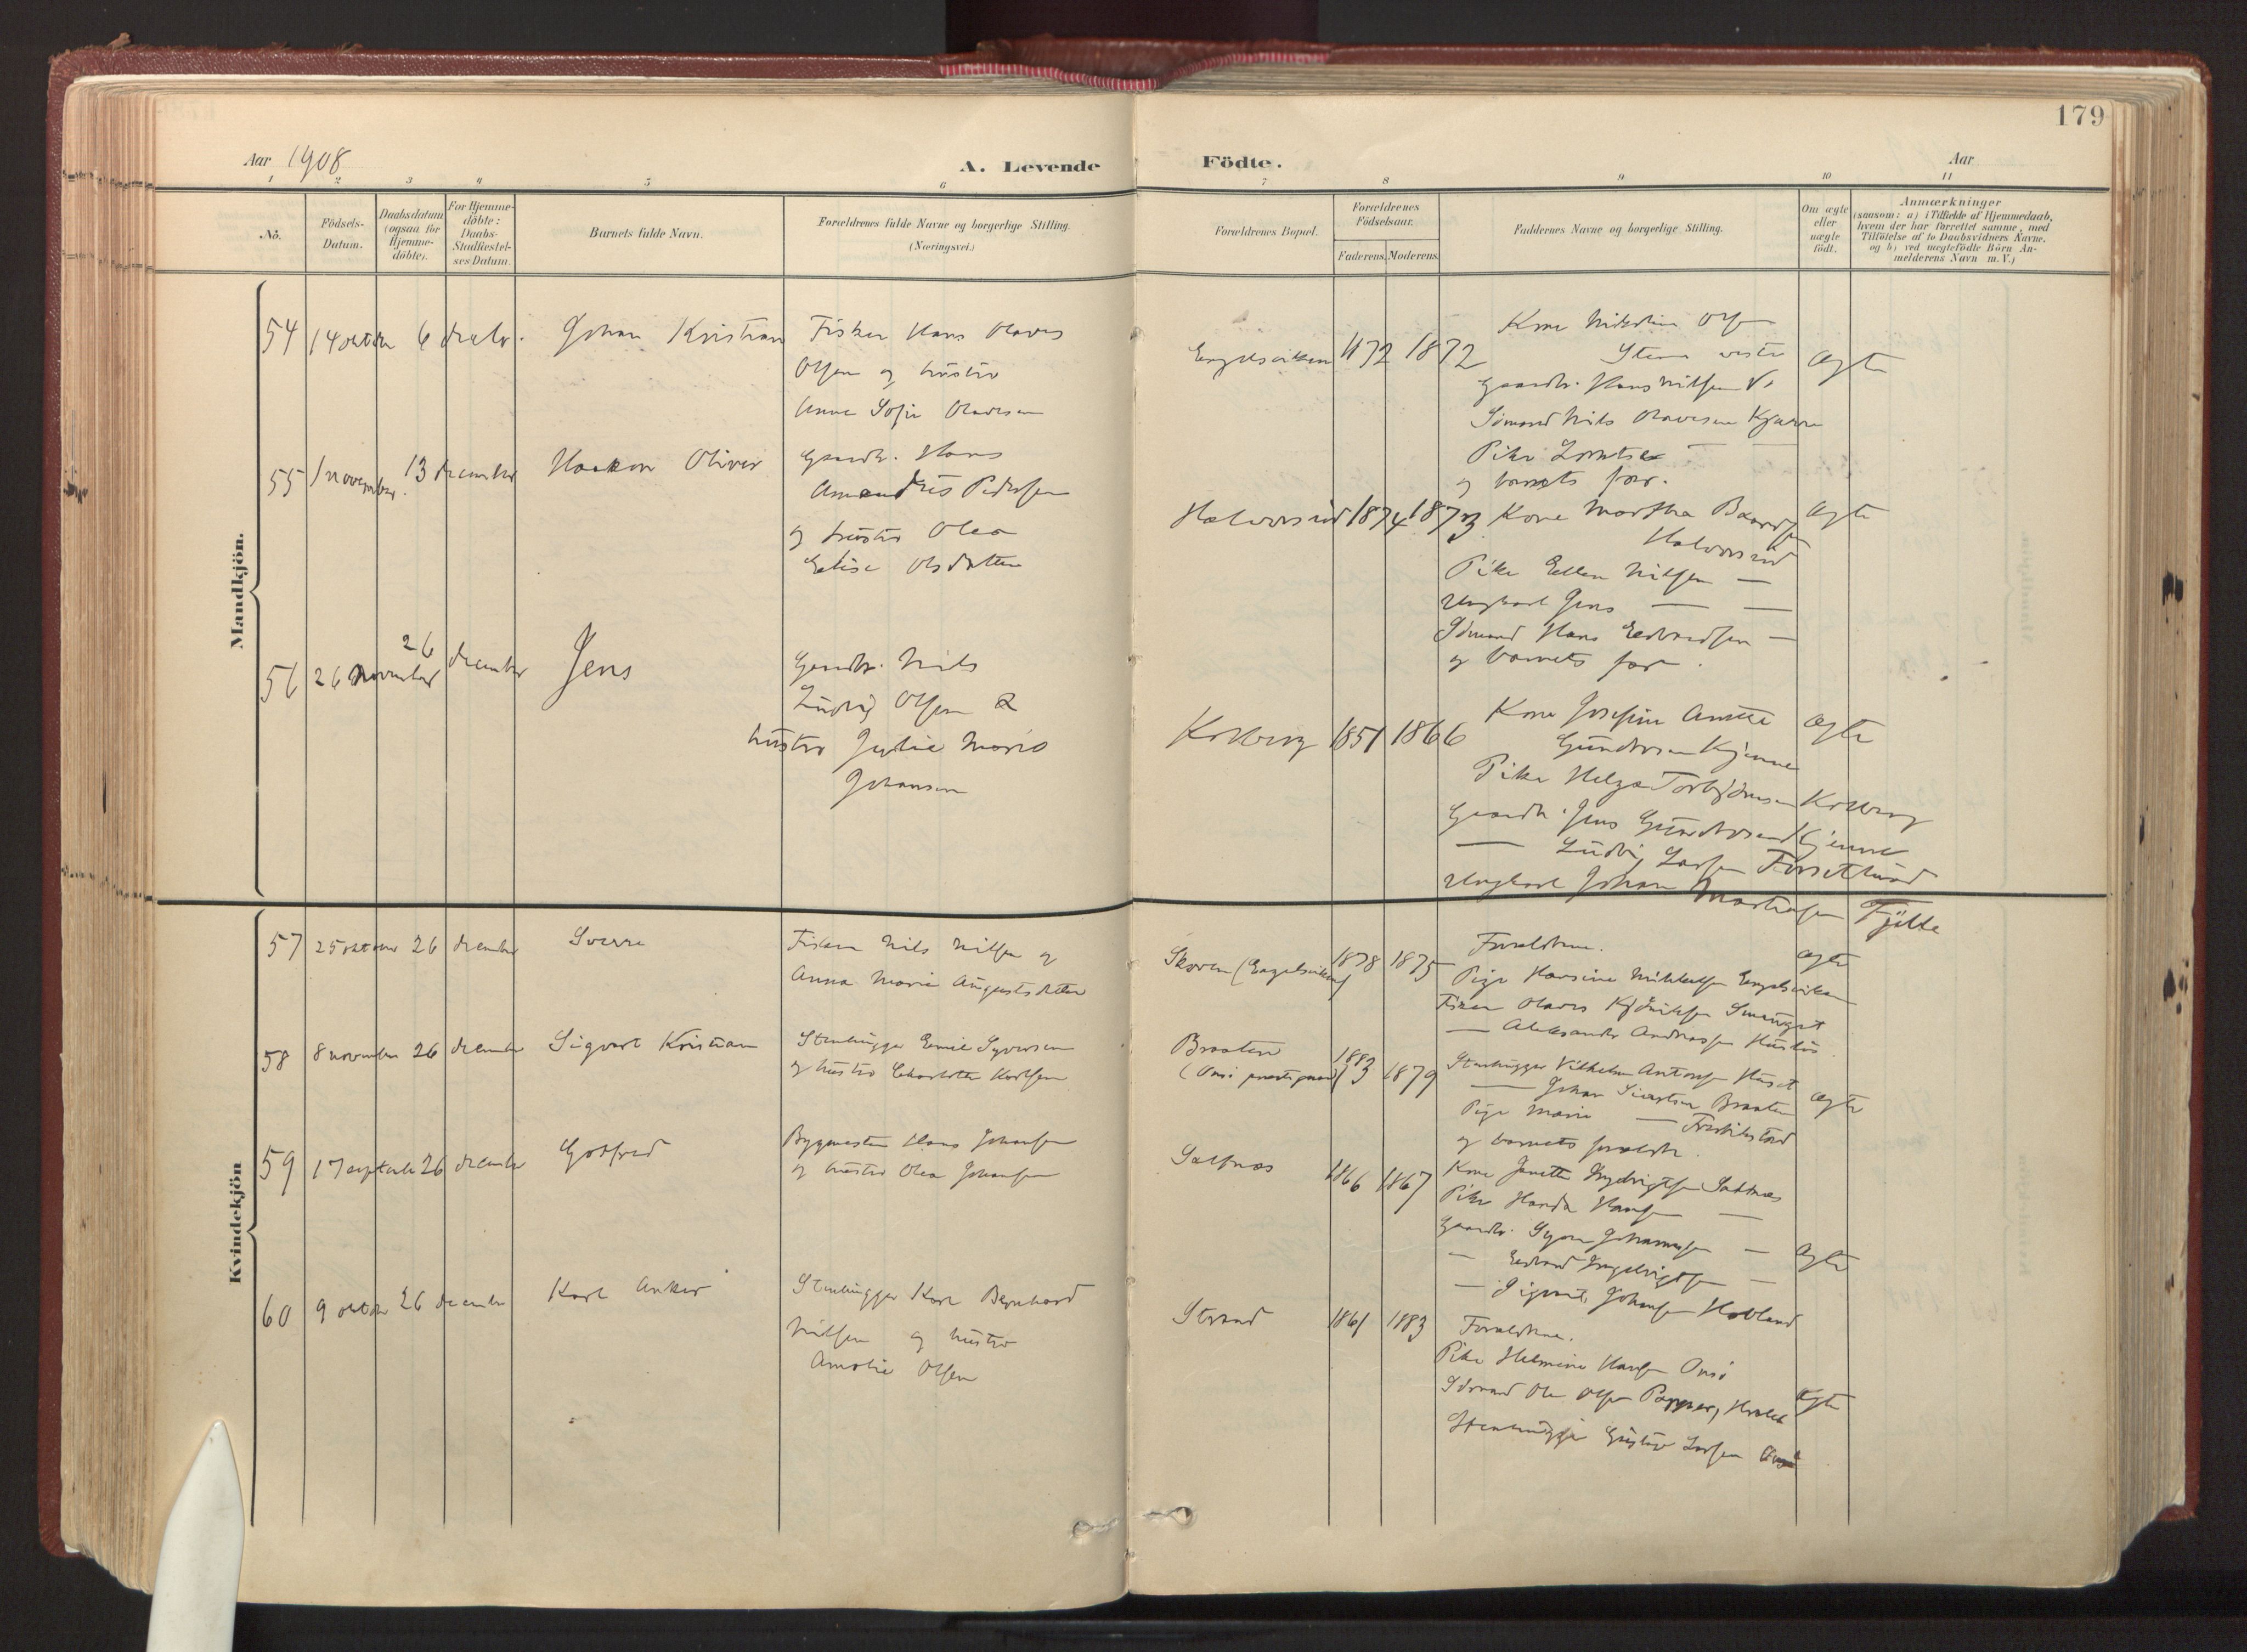 179
Aar 1908
A. Levende Födte.
Aar
1 2 3 4 5 6 7 8 9 10 11
No.
Födsels-
Datum.
Daabsdatum
(ogsaa for
Hjemme-
döbte).
For Hjemme-
döbte:
Daabs-
Stadfæstel-
ses Datum.
Barnets fulde Navn.
Forældrenes fulde Navne og borgerlige Stilling.
(Næringsvei.)
Forældrenes Bopæl.
Forældrenes
Födselsaar.
Faderens. Moderens.
Faddernes Navne og borgerlige Stilling.
Om ægte
eller
uægte
födt.
Anmærkninger
(saasom: a) i Tilfælde af Hjemmedaab,
hvem der har forrettet samme, med
Tilföielse af to Daabsvidners Navne,
og b) ved uægtefödte Börn An-
melderens Navn m. V.)
Mandkjön.
54 14 oktober 6 decbr. Johan Kristian
Fisker Hans Olaves
Olsen og hustru
Anne Sofie Olavesen
Engelsviken 1872 1872
Kone Nikoline Olsen
Gaardb. Hans Nilsen
Sömand Nils Olavesen Kjærre
Pike
og barnets far.
ægte
55 1 november 13 december Haakon Oliver
Gaardb. Hans
Amandus Pedersen
og hustru Olea
Elise Olsdatter
Halvorsröd 1874 1873
Kone Martha Baardsen
Halvorsröd
Pike Ellen Nilsen —
Ungkarl Jens — —
Sömand Hans Edvardsen —
og barnets far.
ægte
56 26 november 26 december Jens
Gaardb. Nils
Ludvig Olsen &
hustru Julie Marie
Johansen
Kolberg 1851 1866
Kone Josefine Anette
Gundersen Kjenne
Pike Helga Torbjörnsen Kolberg
Gaardb. Jens Gundersen Kjenne
— Ludvig Larsen Torsetlund
Ungkarl Johan Mortensen Fjelle
ægte
Kvindekjön
57 25 oktober 26 december Sverre
Fisker Nils Nilsen og
Anna Marie Augustsdatter
Skoven (Engelsviken) 1878 1875
Forældrene.
Pige Hansine Mikkelsen Engelsviken
Fisker Olaves
— Aleksander Andreassen
ægte
58 8 november 26 december Sigvart Kristian
Stenhugger Emil Syversen
og hustru Charlotte Karlsen
Braaten
(Onsö prestegaard) 1883 1879
Stenhugger Vilhelm Antonsen Huset
— Johan Sivertsen Braaten
Pige Marie — Fredrikstad
og barnets forældre.
ægte
59 17 septemb 26 december Gotfred
Bygmester Hans Johansen
og hustru Olea Johansen
Saltnæs 1866 1867
Kone Janette Ingebrigtsen Saltnæs
Pike Hansen —
Gaardb. Syver Johannessen —
— Edvard Ingebrigtsen —
— Sigvart Johansen Hovland
ægte
60 9 oktober 26 december Karl Anker
Stenhugger Karl Bernhard
Nilsen og hustru
Amalie Olsen
Strand 1861 1883
Forældrene.
Pike Helmine Hansen Onsö
Sömand Ole Olsen
Stenhugger Gustav Larsen Onsö
ægte